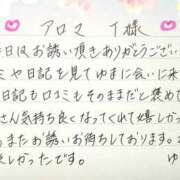 アロマ T様
本日はお誘い頂きありがとうござい
ミや日記を見てゆまに会いに来
日記も口コミもそのままだと褒めて
さん気持ち良くなってくれて嬉しかっ
またお誘いお待ちしております。
しかったです。 ゆ